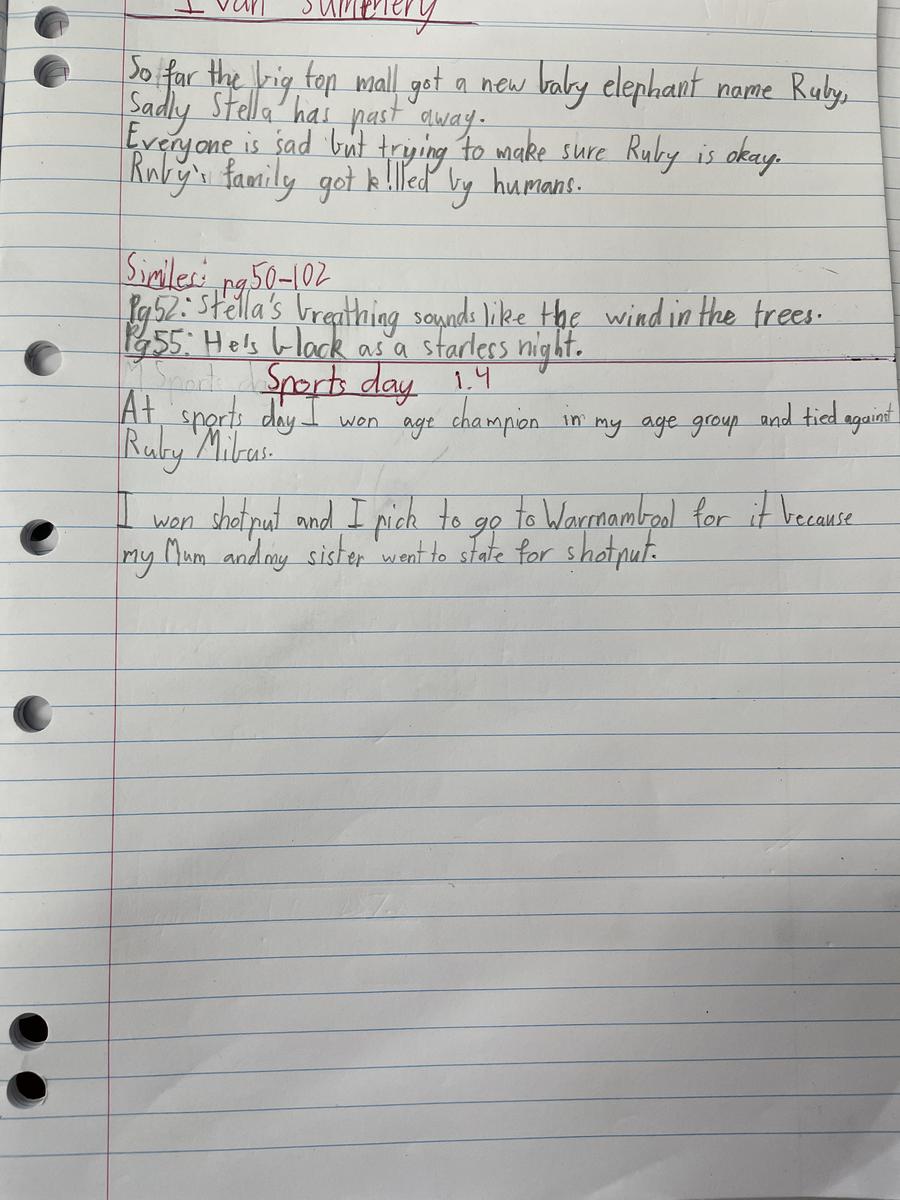 Ivan summery
So far the big top mall got a new baby elephant name Ruby,
Sadly Stella has past away.
Everyone is sad but trying to make sure Ruby is okay.
Ruby's family got k!lled by humans.
Similes: pg50-102
Pg52: Stella's breathing sounds like the wind in the trees.
Pg55: He's black as a starless night.
Sports day 1.4
At sports day I won age champion in my age group and tied against
Ruby Mibus.
I won shotput and I pick to go to Warrnambool for it because
my Mum and my sister went to state for shotput.